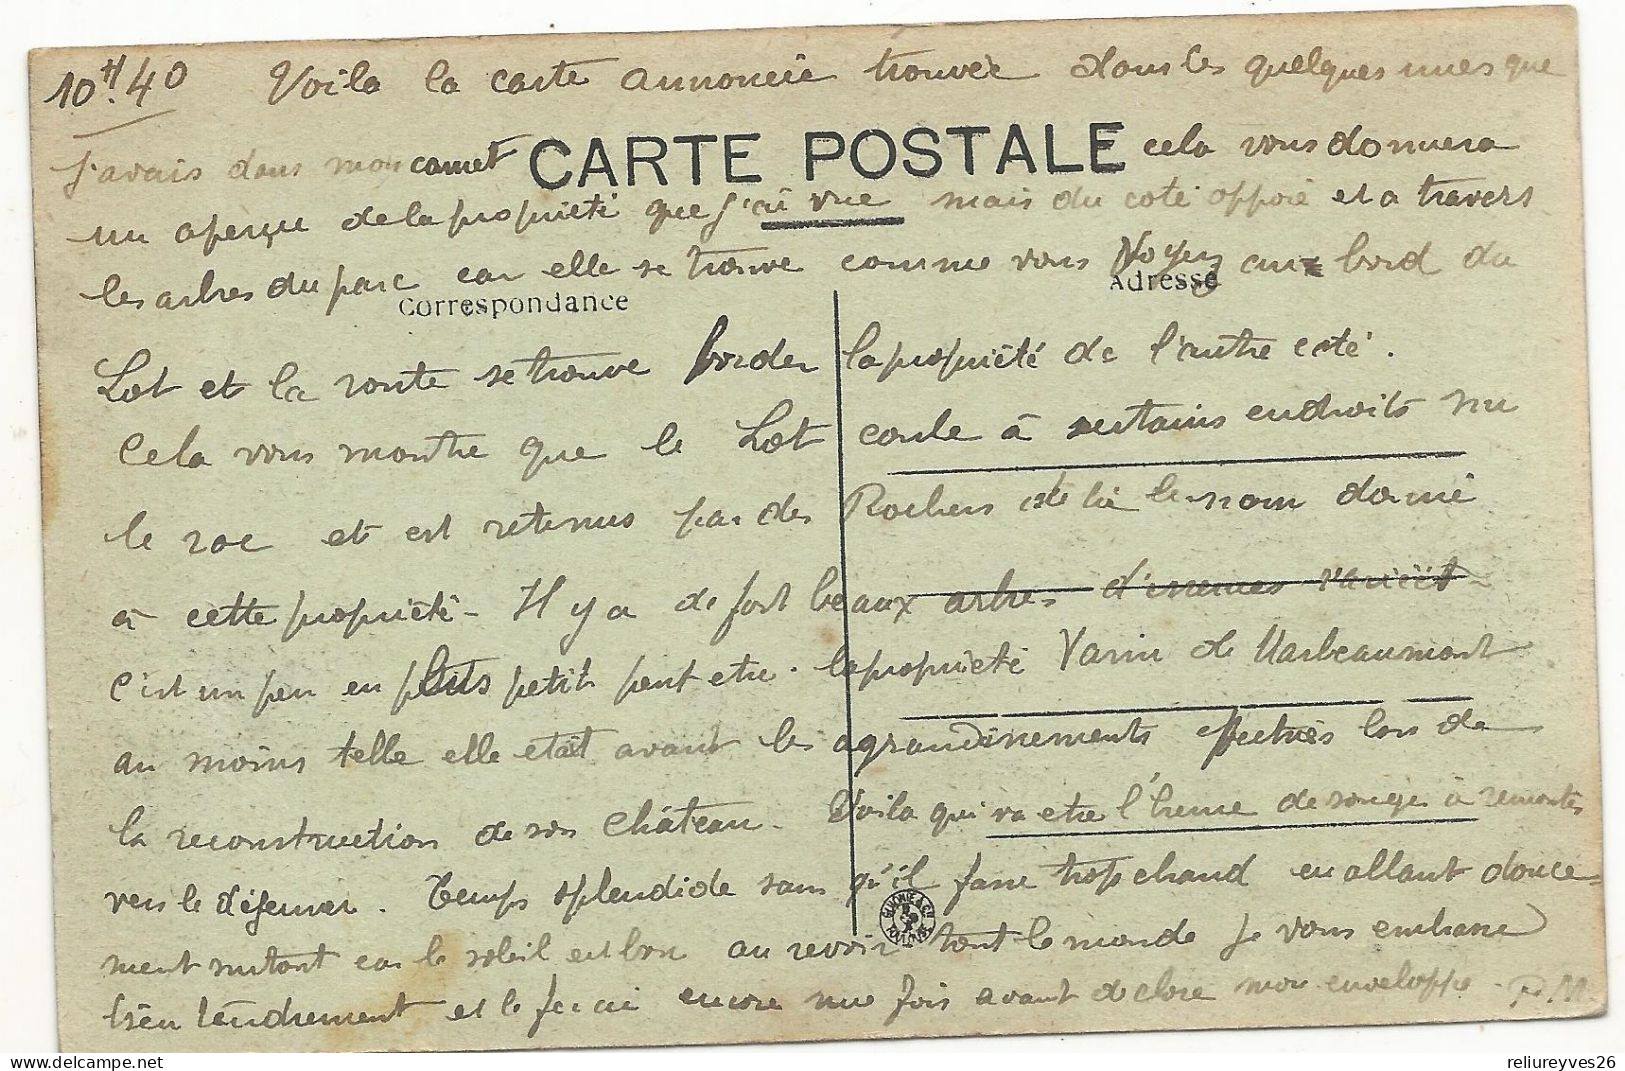 10H.40 Voila la carte annoncée trouvée dans les quelques unes que
j'avais dans mon carnet CARTE POSTALE cela vous donnera
un aperçu de la propriété que j'ai vue mais du coté opposé et a travers
les arbres du parc car elle se trouve comme vous Voyez au bord du
Correspondance Adresse
Lot et la route se trouve border la propriété de l'autre coté.
Cela vous montre que le Lot coule à certains endroits sur
le roc et est retenus par des Rochers de là le nom donné
à cette propriété - Il y a de fort beaux arbres d'essences variées
C'est un peu en plus petit peut etre la propriété Varin de Marbeaumont
au moins telle elle etait avant les agrandissements effectués lors de
la reconstruction de son Château. Voila qui va etre l'heure de songer à remonter
vers le déjeuner. Temps splendide sans qu'il fasse trop chaud en allant douce-
ment surtout car le soleil est bon au revoir tout le monde je vous embrasse
bien tendrement et le ferai encore une fois avant de clore mon enveloppe. P.M.
reliureyves26